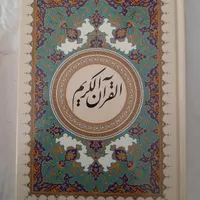 القرآن الکریم